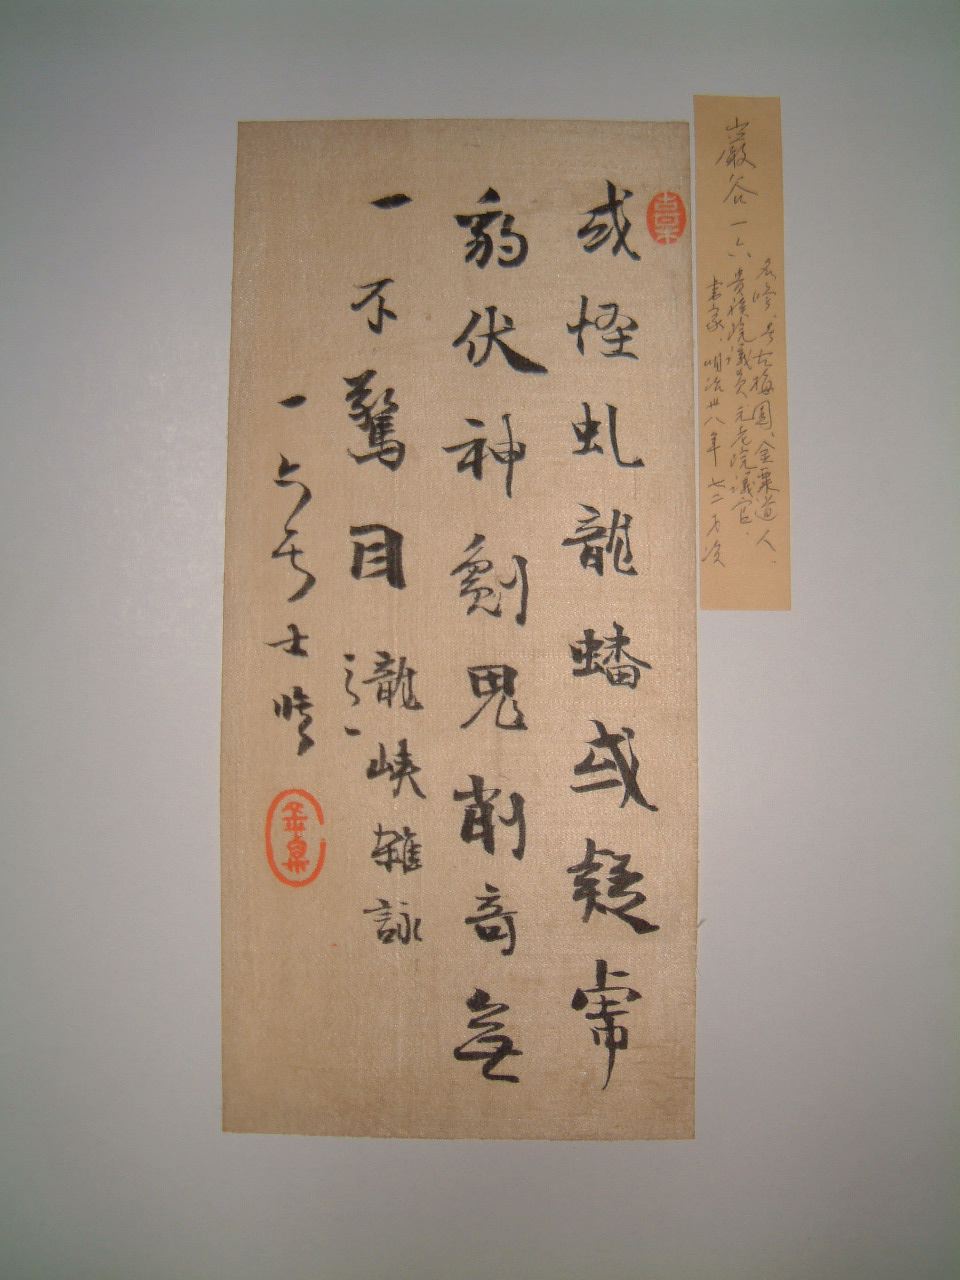 或怪虬龍蟠或疑虎
豹伏神劖鬼削奇無
一不驚目 瀧峡雑詠
之一
一六居士脩
巖谷一六
名脩、号古梅園、金粟道人、
貴族院議員元老院議官、
書家、明治卅八年七二才没
金粟